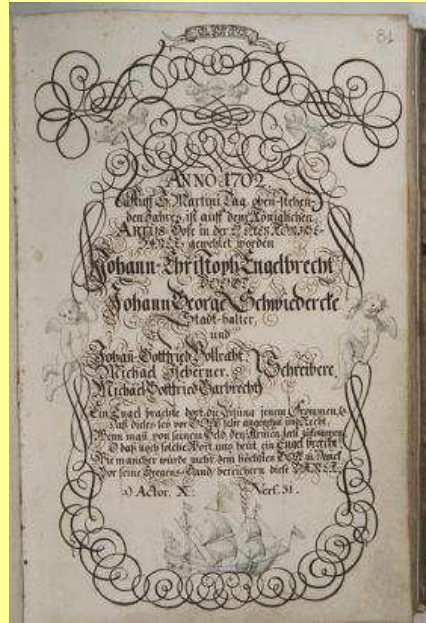 81
ANNO 1702
Auff S. Martini Tag oben-stehen-
den Jahres, ist auff dem Königlichen
ARTUS Hofe in der
BANCK gewehlet worden
Johann Christoph Engelbrecht
VOGT
Johann George Schwiedercke
Stadt-halter,
und
Johan Gottfried Vollraht
Michael Scherner. Schreibere.
Michael Gottfried Garbrecht
Ein Engel brachte dort die Zeitung jenem Frommen,
Daß dieses sey vor GOtt sehr angenehm und Recht,
Wenn man von seinem Geld den Armen läst zukommen,
O daß noch solche Wort uns heut ein Engel brächt!
Wie mancher würde mehr dem höchsten GOtt zu
Vor seine Seegens-Hand bereichern diese BANCK.
Actor. X. Vers. 31.